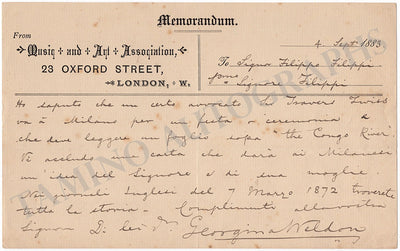 Memorandum.
From
Music and Art Association,
23 OXFORD STREET,
LONDON, W.
4 Sept 1883
To Signor Filippo Filippi
Signore Filippi
Ho saputo che un certo avvocato Travers Twiss
va à Milano per una festa o ceremonia e
che deve leggere un foglio sopra the Congo River.
Vi accludo una carta che darà ai Milanesi
un idea del Signore e di sua moglie.
Nei giornali Inglesi del 7 Marzo 1872 troverete
tutta la storia - Complimenti alla vostra
Signora Di lei Georgina Weldon
TAMINO AUTOGRAPHS